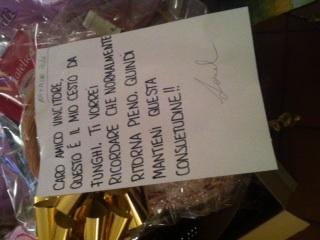 CARO AMICO VINCITORE,
QUESTO È IL MIO CESTO DA
FUNGHI. TI VORREI
RICORDARE CHE NORMALMENTE
RITORNA PIENO, QUINDI
MANTIENI QUESTA
CONSUETUDINE!!